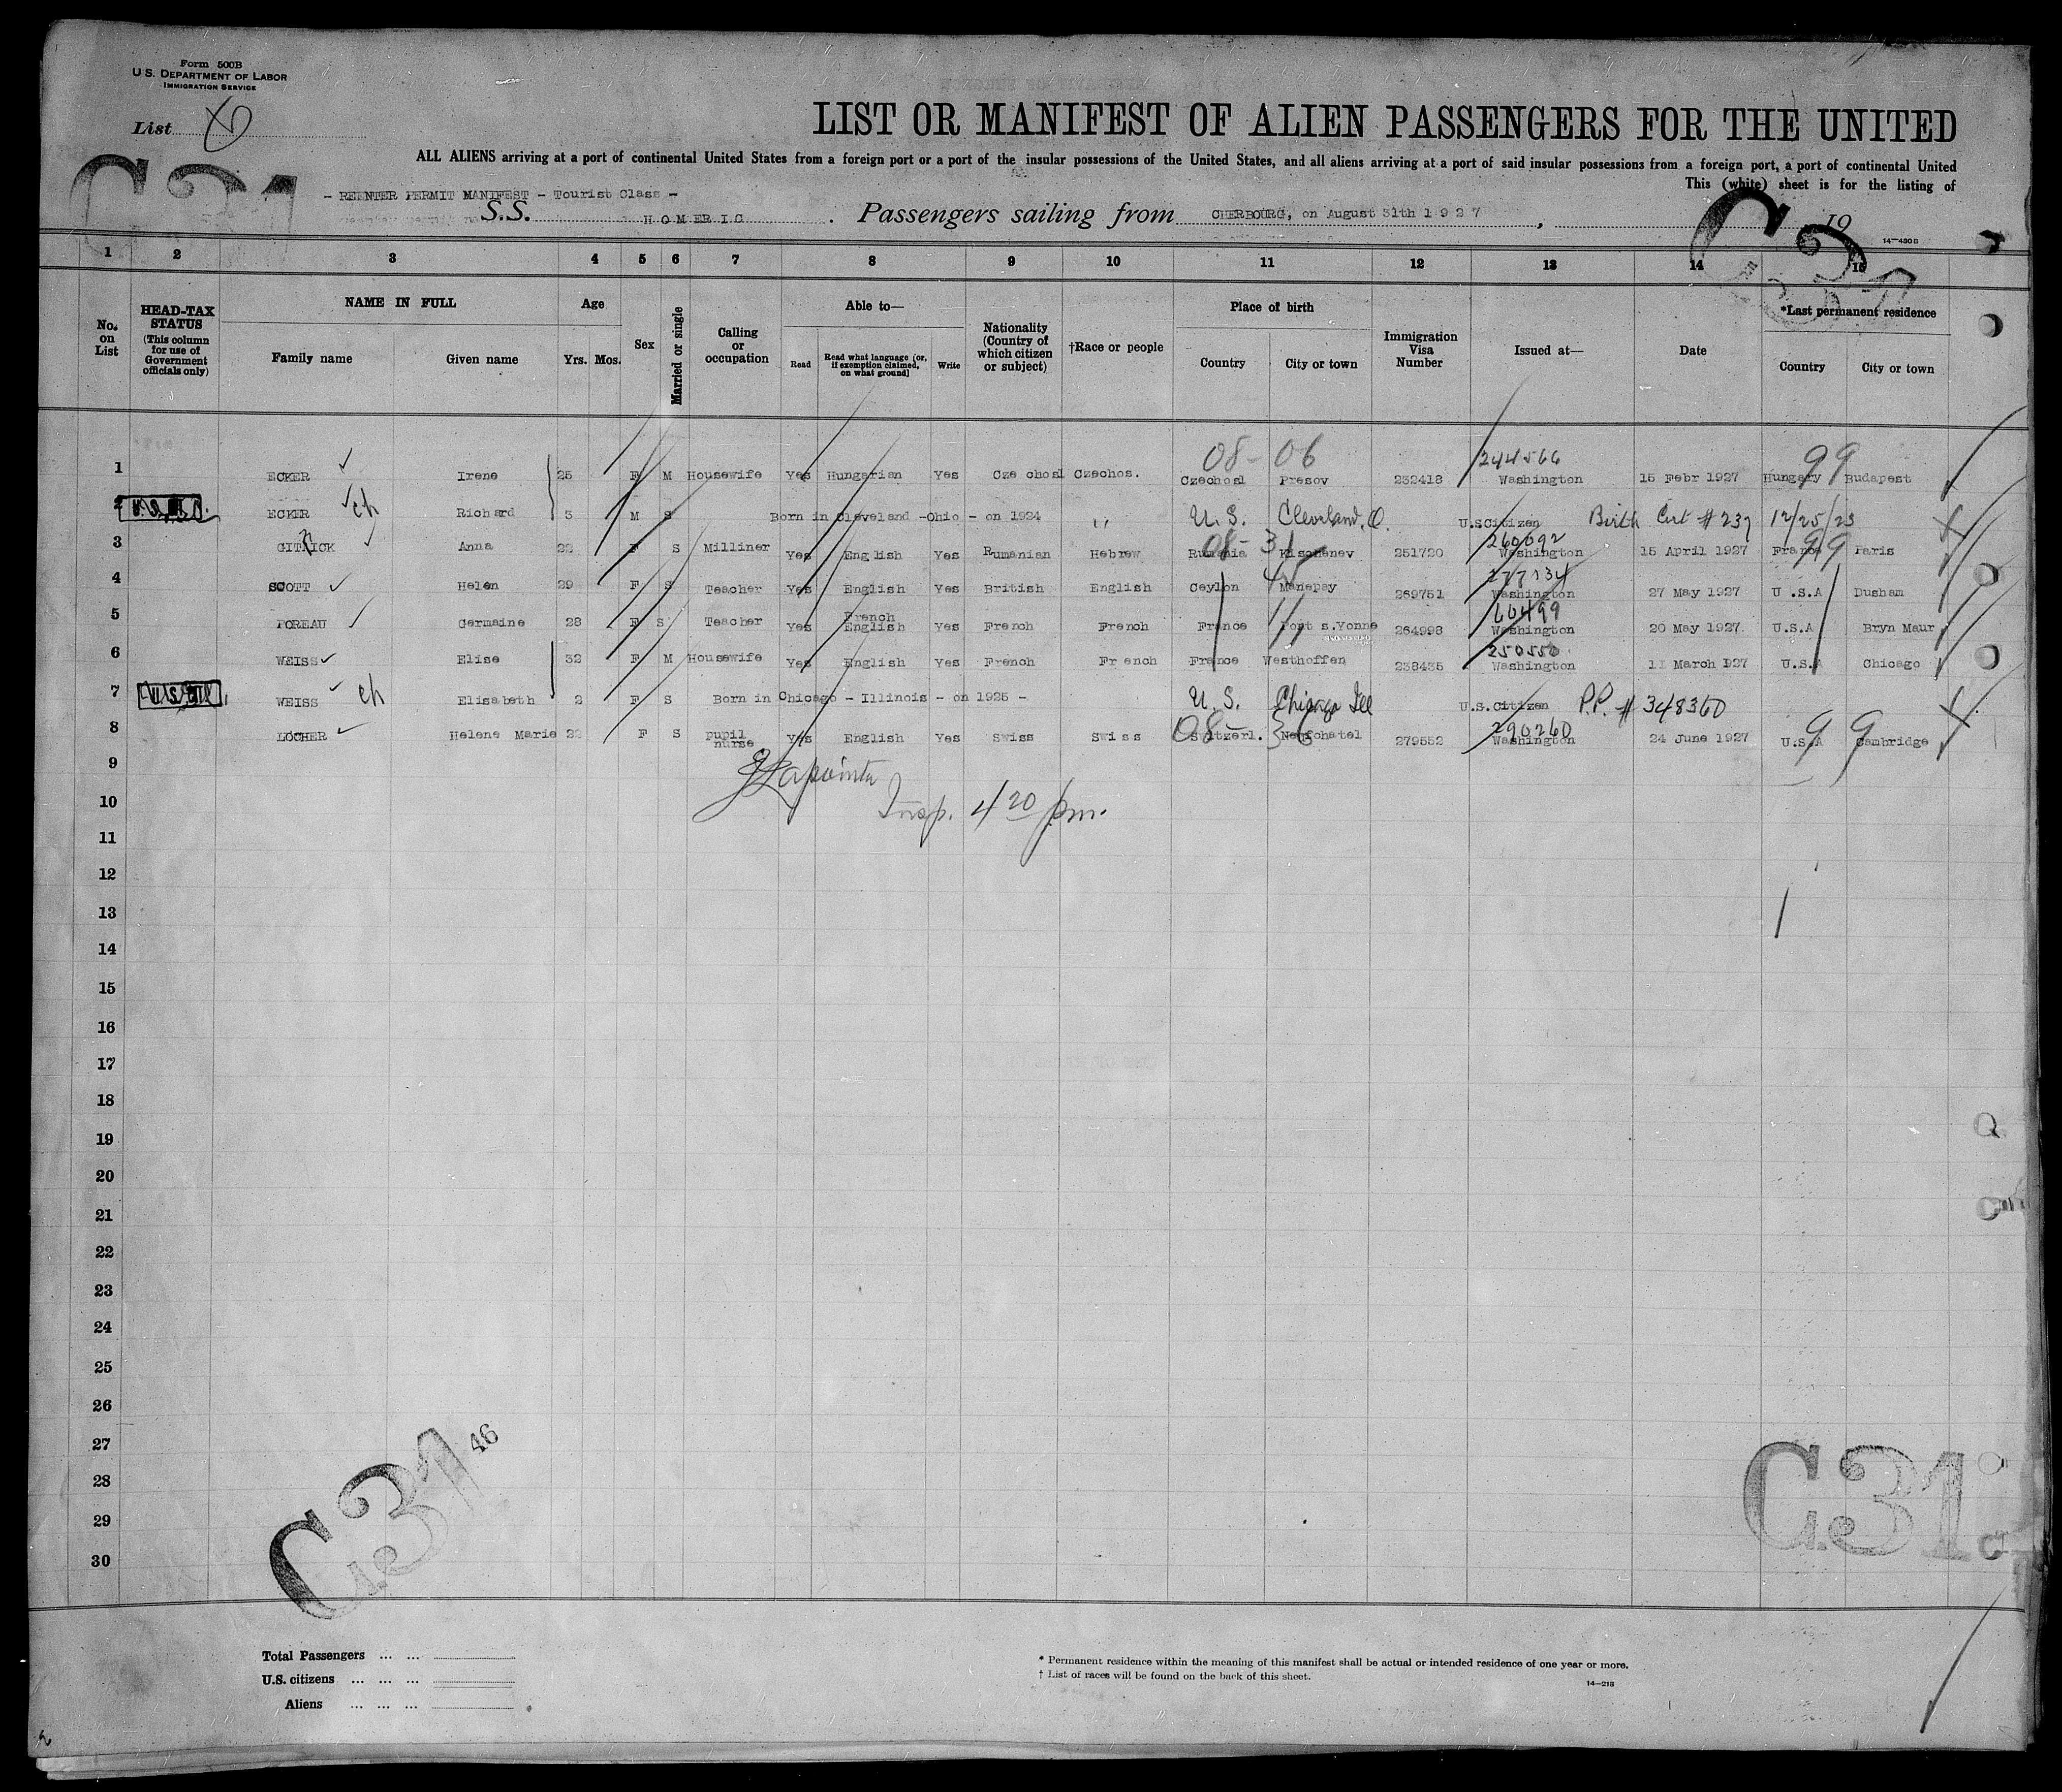 Form 500B
U.S. DEPARTMENT OF LABOR
IMMIGRATION SERVICE
List
LIST OR MANIFEST OF ALIEN PASSENGERS FOR THE UNITED
ALL ALIENS arriving at a port of continental United States from a foreign port or a port of the insular possessions of the United States, and all aliens arriving at a port of said insular possessions from a foreign port, a port of continental United
This (white) sheet is for the listing of
- REENTER PERMIT MANIFEST - Tourist Class -
S.S. HOMERIC. Passengers sailing from CHERBOURG, on August 31th 1927, 19
14-480B
C31
1 2 3 4 5 6 7 8 9 10 11 12 13 14 15
No. on List
HEAD-TAX STATUS (This column for use of Government officials only)
NAME IN FULL
Family name Given name
Age
Yrs. Mos.
Sex
Married or single
Calling or occupation
Able to—
Read Read what language [or, if exemption claimed, on what ground] Write
Nationality (Country of which citizen or subject)
†Race or people
Place of birth
Country City or town
Immigration Visa Number
Issued at—
Date
*Last permanent residence
Country City or town
08- 06 244566 99
1 ECKER Irene 25 F M Housewife Yes Hungarian Yes Czechosl Czechos. Czechosl Presov 232418 Washington 15 Febr 1927 Hungary Budapest
2 ECKER ch Richard 3 M S Born in Cleveland -Ohio - on 1924 " U.S. Cleveland, O. U.S Citizen Birth Cert # 237 12/25/23
08- 31 260692 99
3 GITNICK Anna 22 F S Milliner Yes English Yes Rumanian Hebrew Rumania Kischenev 251720 Washington 15 April 1927 France Paris
45 277134
4 SCOTT Helen 29 F S Teacher Yes English Yes British English Ceylon Manepay 269751 Washington 27 May 1927 U.S.A Dusham
60499
5 POREAU Germaine 28 F S Teacher Yes French English Yes French French France Pont s.Yonne 264998 Washington 20 May 1927 U.S.A Bryn Maur
250550
6 WEISS Elise 32 F M Housewife Yes English Yes French French France Westhoffen 238435 Washington 11 March 1927 U.S.A Chicago
7 WEISS ch Elisabeth 2 F S Born in Chicago - Illinois - on 1925 - U.S. Chicago Ill U.S.Citizen P.P. # 348360
08- 290260 99
8 LOCHER Helene Marie 22 F S pupil nurse Yes English Yes Swiss Swiss Switzerl. Neufchatel 279552 Washington 24 June 1927 U.S.A Cambridge
9
Lapointe
10 Insp. 4 20 pm.
11
12
13
14
15
16
17
18
19
20
21
22
23
24
25
26
27
28
29
30
C31 46
C31
Total Passengers ... ...
U.S. citizens ... ... ...
Aliens ... ... ...
* Permanent residence within the meaning of this manifest shall be actual or intended residence of one year or more.
† List of races will be found on the back of this sheet.
14-213